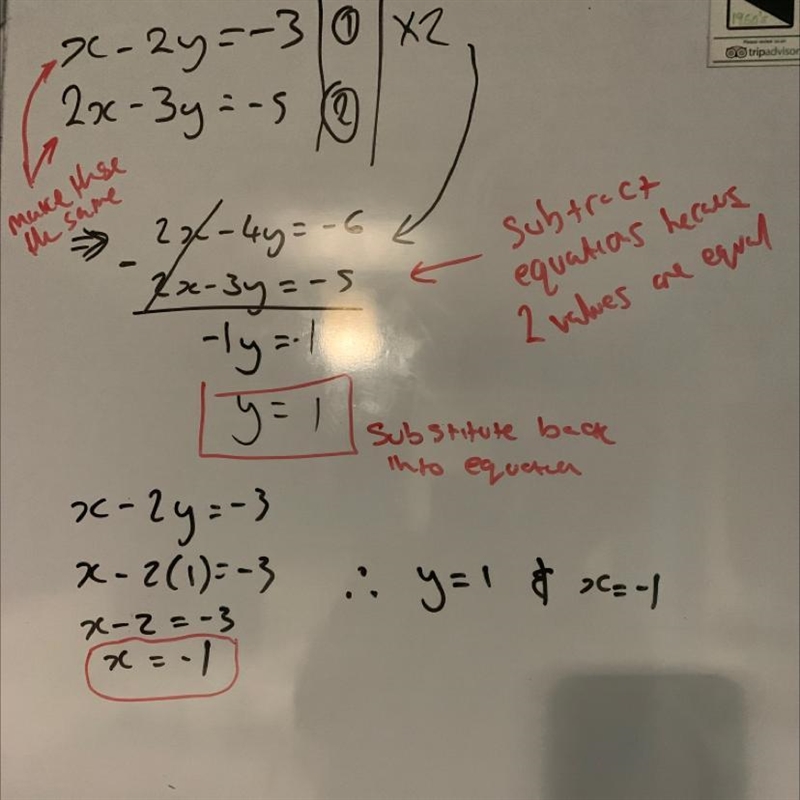 x - 2y = -3 ① ×2
2x - 3y = -5 ②
make these
the same
⇒ 2x - 4y = -6
- 2x - 3y = -5
-1y = -1
y = 1
Subtract
equations
2 values are equal
Substitute back
into equation
x - 2y = -3
x - 2(1) = -3
x - 2 = -3
x = -1
∴ y = 1 & x = -1
1960's
tripadvisor